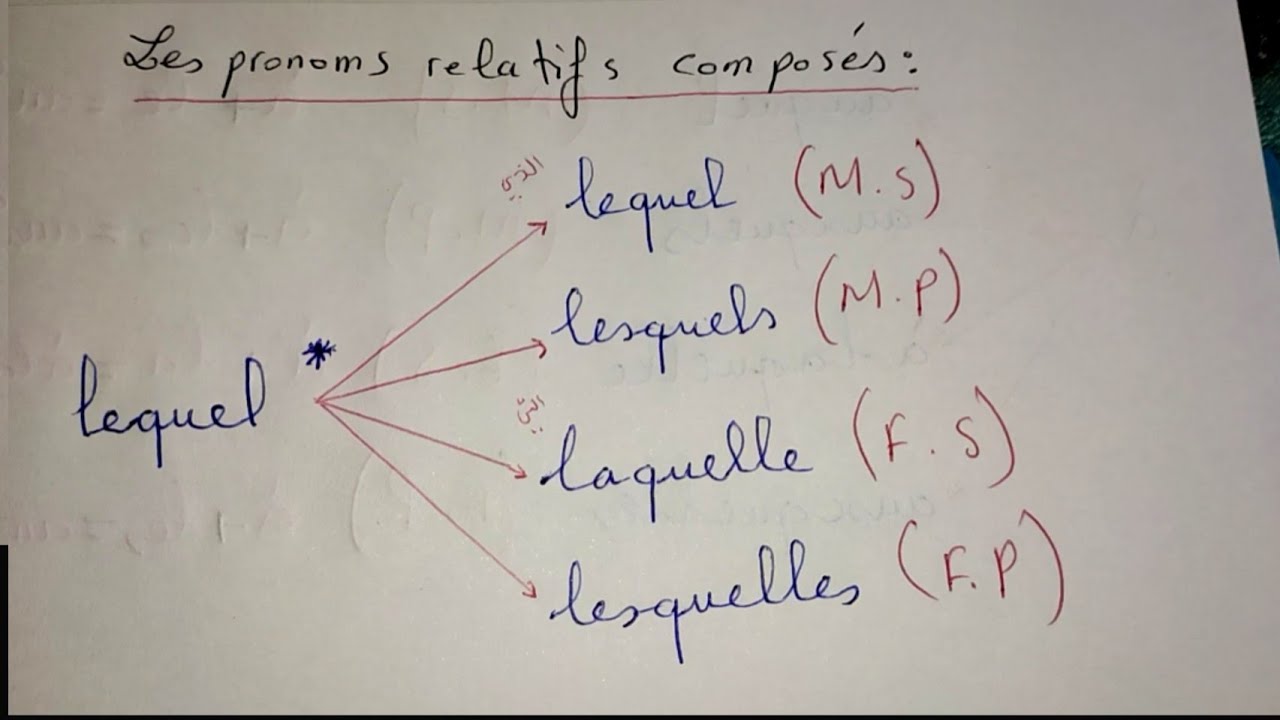 Les pronoms relatifs composés:
الذي
lequel (M.S)
lesquels (M.P)
lequel *
التي
laquelle (F.S)
lesquelles (F.P)